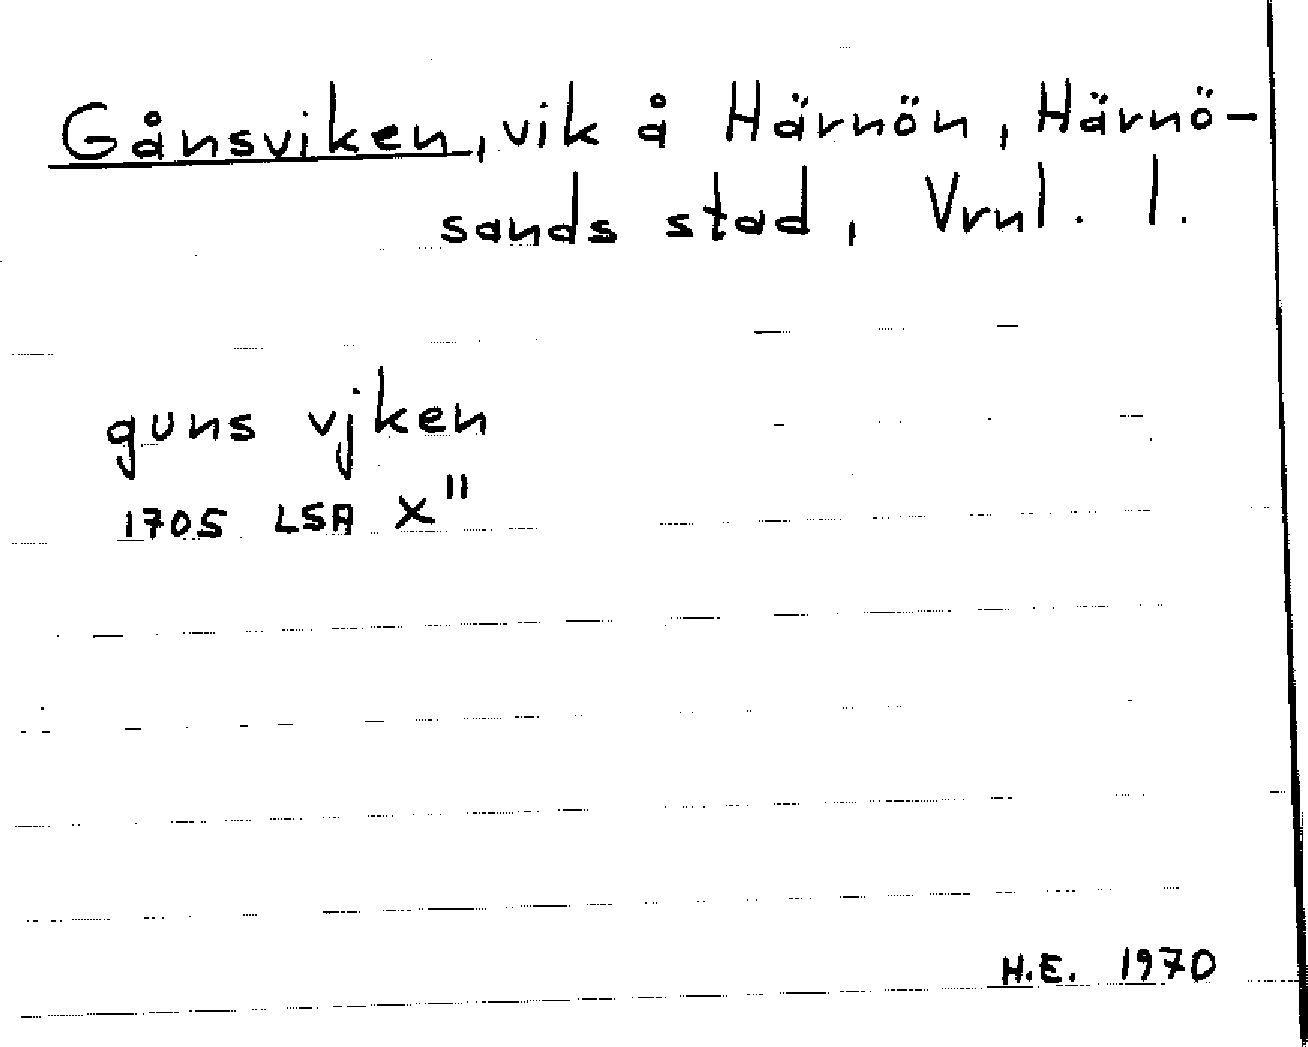 Gånsviken, vik å Härnön, Härnö-
sands stad, Vrnl. l.
guns vjken
1705 LSA X"
H.E. 1970